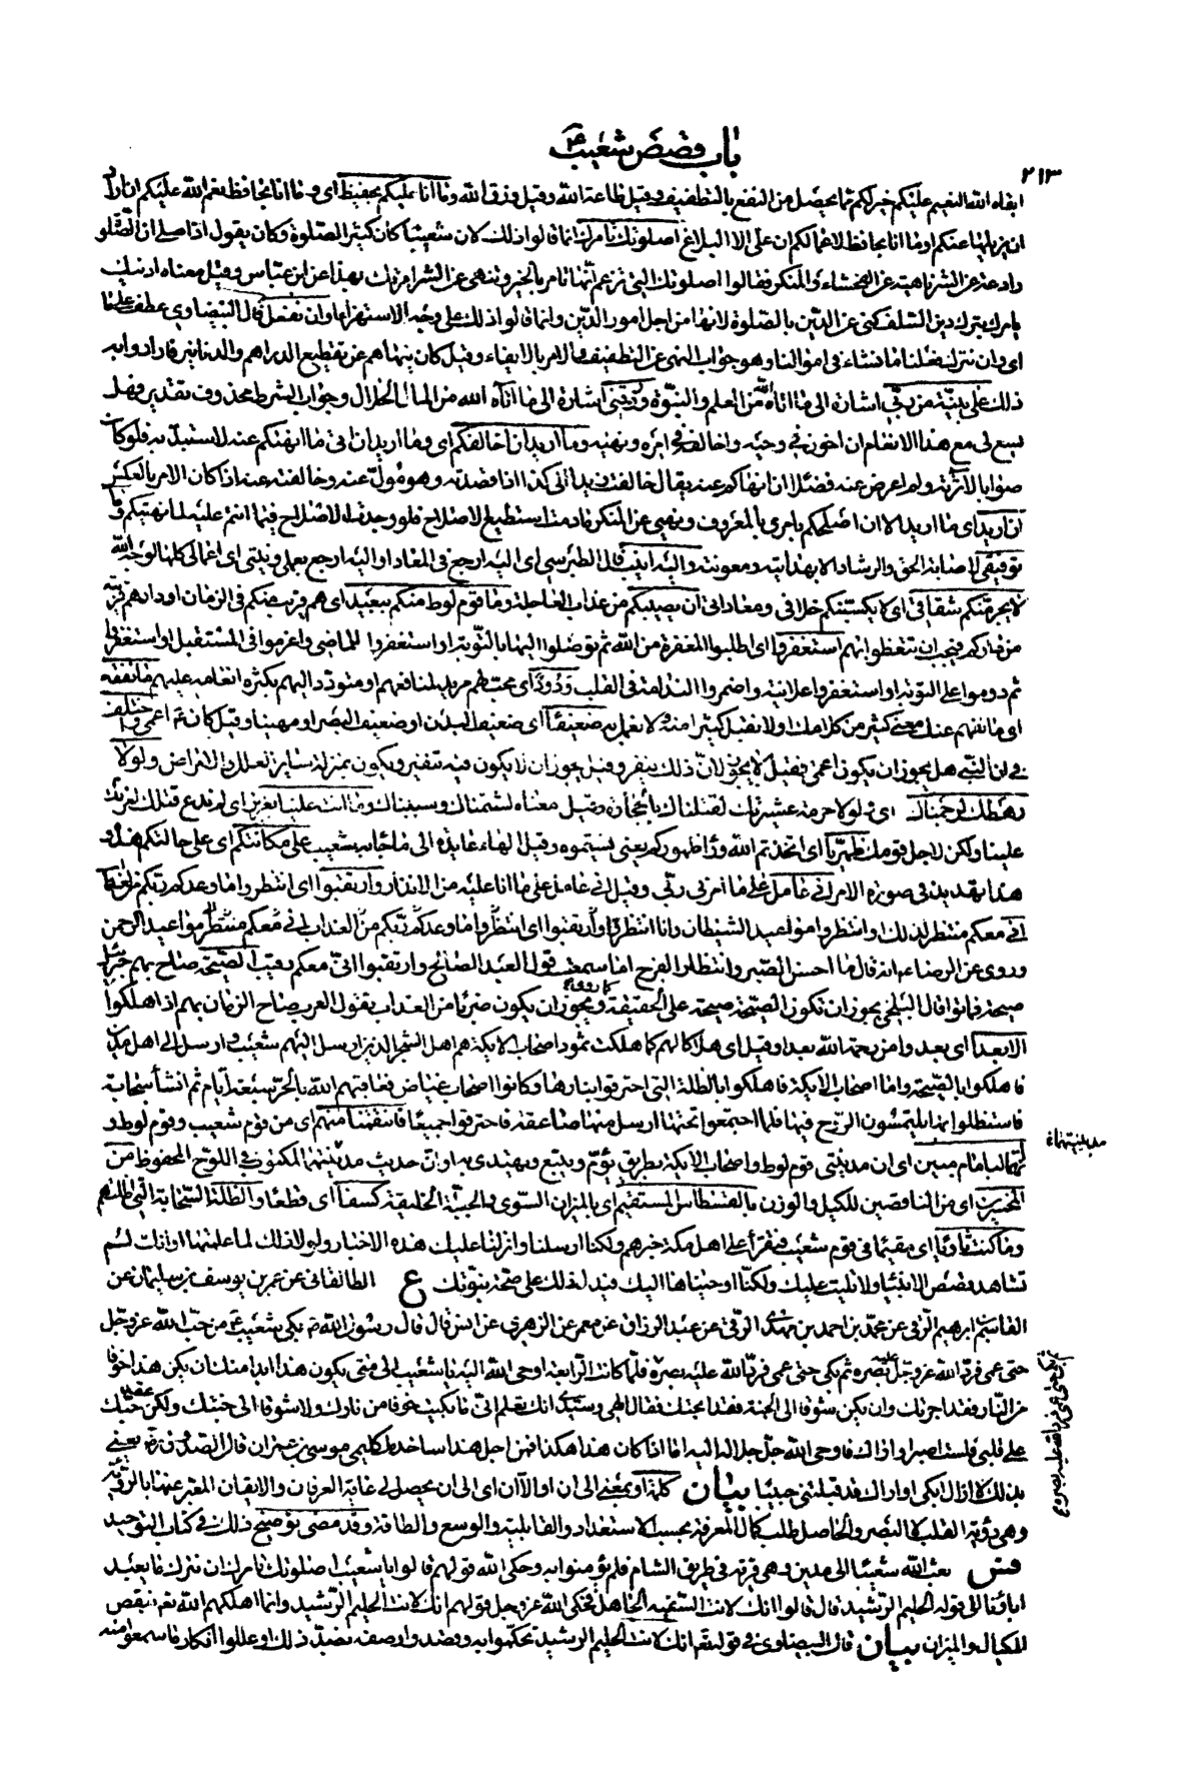 باب قصص شعيب ع
٢١٣
ابقاء الله النعيم عليكم خير لكم مما يحصل من النفع بالتطفيف وقيل طاعة الله وقيل رزق الله وما انا عليكم بحفيظ اى وما انا بحافظ نعم الله عليكم ان اراد
ان يزيلها عنكم او ما انا بحافظ لاعمالكم ان على الا البلاغ اصلوتك تامرك انما قالوا ذلك لان شعيبا كان كثير الصلوة وكان يقول اذا صلى ان الصلو
رادعة عن الشر ناهية عن الفحشاء والمنكر فقالوا اصلوتك التى تزعم انها تامر بالخير وتنهى عن الشر امرتك بهذا عن ابن عباس وقيل معناه ادينك
يامرك بترك دين السلف كنى عن الدين بالصلوة لانها من اجل امور الدين وانما قالوا ذلك على وجه الاستهزاء او ان نفعل قال البيضاوى عطف على ما
اى وان نترك فعلنا ما نشاء فى اموالنا وهو جواب النهى عن التطفيف والامر بالايفاء وقيل كان ينهاهم عن تقطيع الدراهم والدنانير فارادوا به
ذلك على بينة من ربى اشارة الى ما اتاه الله من العلم والنبوة ورزقنى اشارة الى ما اتاه الله من المال الحلال وجواب الشرط محذوف تقديره فهل
يسع لى مع هذا الانعام ان اخون فى وحيه واخالفه فى امره ونهيه وما اريد ان اخالفكم اى وما اريد ان اتى ما انهيكم عنه لاستبد به فلو كان
صوابا لآثرته ولم اعرض عنه فضلا ان انهاكم عنه يقال خالفت زيدا الى كذا اذا قصدته وهو مول عنه وخالفته عنه اذا كان الامر بالعكس
ان اريد اى ما اريد الا ان اصلحكم بامرى بالمعروف ونهيى عن المنكر ما دمت استطيع الاصلاح فلو وجدت الاصلاح فيما انتم عليه لما نهيتكم وما
توفيقى لاصابة الحق والرشاد الا بهدايته ومعونته واليه انيب قال الطبرسى اى اليه ارجع فى المعاد او اليه ارجع بعملى ونيتى اى اعمالى كلها لوجه الله
لا يجرمنكم شقاقى اى لا يكسبنكم خلافى ومعاداتى ان يصيبكم من عذاب العاجلة وما قوم لوط منكم ببعيد اى هم قريب منكم فى الزمان او دارهم قريبة
من داركم فيجب ان تتعظوا بهم استغفروا اى اطلبوا المغفرة من الله ثم توصلوا اليها بالتوبة او استغفروا للماضى واعزموا فى المستقبل او استغفروا
ثم دوموا على التوبة او استغفروا علانية واضمروا الندامة فى القلب ودود اى محب لهم مريد لمنافعهم او متودد اليهم بكثرة انعامه عليهم ما نفقه
اى ما نفهم عنك معنى كثير من كلامك اولا نقبل كثيرا منه ولا نعمل به ضعيفا اى ضعيف البدن او ضعيف البصر او مهينا وقيل كان ع اعمى واختلف
فى ان النبى هل يجوز ان يكون اعمى فقيل لا يجوز لان ذلك ينفر وقيل يجوز ان لا يكون فيه تنفير ويكون بمنزلة سائر العلل والامراض ولولا
رهطك لرجمناك اى ولولا حرمة عشيرتك لقتلناك بالحجارة وقيل معناه لشتمناك وسببناك وما انت علينا بعزيز اى لم ندع قتلك لعزتك
علينا ولكن لاجل قومك ظهريا اى اتخذتم الله وراء ظهوركم يعنى نسيتموه وقيل الهاء عايدة الى ما جاء به شعيب على مكانتكم اى على حالتكم هذه و
هذا تهديد فى صورة الامر انى عامل على ما امرنى ربى وقيل انى عامل على ما انا عليه من الانذار وارتقبوا اى انتظروا ما وعدكم ربكم من العذاب
انى معكم منتظر لذلك وانتظروا مواعيد الشيطان وانا انتظر وارتقبوا اى انتظروا ما وعدكم ربكم من العذاب انى معكم منتظر مواعيد الرحمن
وروى عن الرضا ع انه قال ما احسن الصبر وانتظار الفرج اما سمعت قول العبد الصالح وارتقبوا انى معكم رقيب الصيحة صاح بهم جبرئيل
صيحة فماتوا قال البلخى يجوز ان تكون الصيحة صيحة على الحقيقة كما روى ويجوز ان يكون ضربا من العذاب تقول العرب صاح الزمان بهم اذا هلكوا
الا بعدا اى بعدوا من رحمة الله بعدا وقيل اى هلاكا لهم كما هلكت ثمود اصحاب الايكة هم اهل الشجر الذين ارسل اليهم شعيب وارسل الى اهل مدين
فاهلكوا بالصيحة واما اصحاب الايكة فاهلكوا بالظلة التى احترقوا بنارها وكانوا اصحاب غياض فعاقبهم الله بالحر سبعة ايام ثم انشأ سحابة
فاستظلوا بها يلتمسون الروح فيها فلما اجتمعوا تحتها ارسل منها صاعقة فاحترقوا جميعا فانتقمنا منهم اى من قوم شعيب وقوم لوط و
انهما لبامام مبين اى ان مدينتى قوم لوط واصحاب الايكة بطريق يؤم ويتبع ويهتدى به او ان حديث مدينتهما لمكتوب فى اللوح المحفوظ من
مدينتهما
المخسرين اى من الناقصين للكيل والوزن بالقسطاس المستقيم اى بالميزان السوى والجبلة الخليقة كسفا اى قطعا والظلة السحابة التى اظلتهم
وما كنت ثاويا اى مقيما فى قوم شعيب فتقرأ على اهل مكة خبرهم ولكنا ارسلنا وانزلنا عليك هذه الاخبار ولولا ذلك لما علمتها او انك لم
تشاهد قصص الانبياء ولا تليت عليك ولكنا اوحيناها اليك فيدل ذلك على صحة نبوتك ع الطالقانى عن عمر بن يوسف بن سليمان عن
القاسم بن ابرهيم الرقى عن محمد بن احمد بن مهدى الرقى عن عبد الرزاق عن معمر عن الزهرى عن انس قال قال رسول الله ص بكى شعيب ع من حب الله عز وجل
حتى عمى فرد الله عز وجل عليه بصره ثم بكى حتى عمى فرد الله عليه بصره فلما كانت الرابعة اوحى الله اليه يا شعيب الى متى يكون هذا ابدا منك ان يكن هذا خوفا
ثم بكى حتى عمى فرد الله عليه بصره ع
من النار فقد اجرتك وان يكن شوقا الى الجنة فقد ابحتك فقال الهى وسيدى انك تعلم انى ما بكيت خوفا من نارك ولا شوقا الى جنتك ولكن عقد حبك
على قلبى فلست اصبر او اراك فاوحى الله جل جلاله اليه اما اذا كان هذا هكذا فمن اجل هذا ساخدمك كليمى موسى بن عمران قال الصدوق ره يعنى
بذلك لا ازال ابكى او اراك قد قبلتنى حبيبا بيان كلمة او بمعنى الى ان او الا ان اى الى ان يحصل لى غاية العرفان والايقان المعبر عنها بالرؤية
وهى رؤية القلب لا البصر والحاصل طلب كمال المعرفة بحسب الاستعداد والقابلية والوسع والطاقة وقد مضى توضيح ذلك فى كتاب التوحيد
فس بعث الله شعيبا الى مدين وهى قرية فى طريق الشام فلم يؤمنوا به وحكى الله قولهم قالوا يا شعيب اصلوتك تامرك ان نترك ما يعبد
اباؤنا الى قوله الحليم الرشيد قال قالوا انك لانت السفيه الجاهل فحكى الله عز وجل قولهم انك لانت الحليم الرشيد وانما اهلكهم الله تعالى بنقص
المكيال والميزان بيان قال البيضاوى فى قوله تعالى انك لانت الحليم الرشيد تهكموا به وقصدوا وصفه بضد ذلك او عللوا انكار ما سمعوا منه